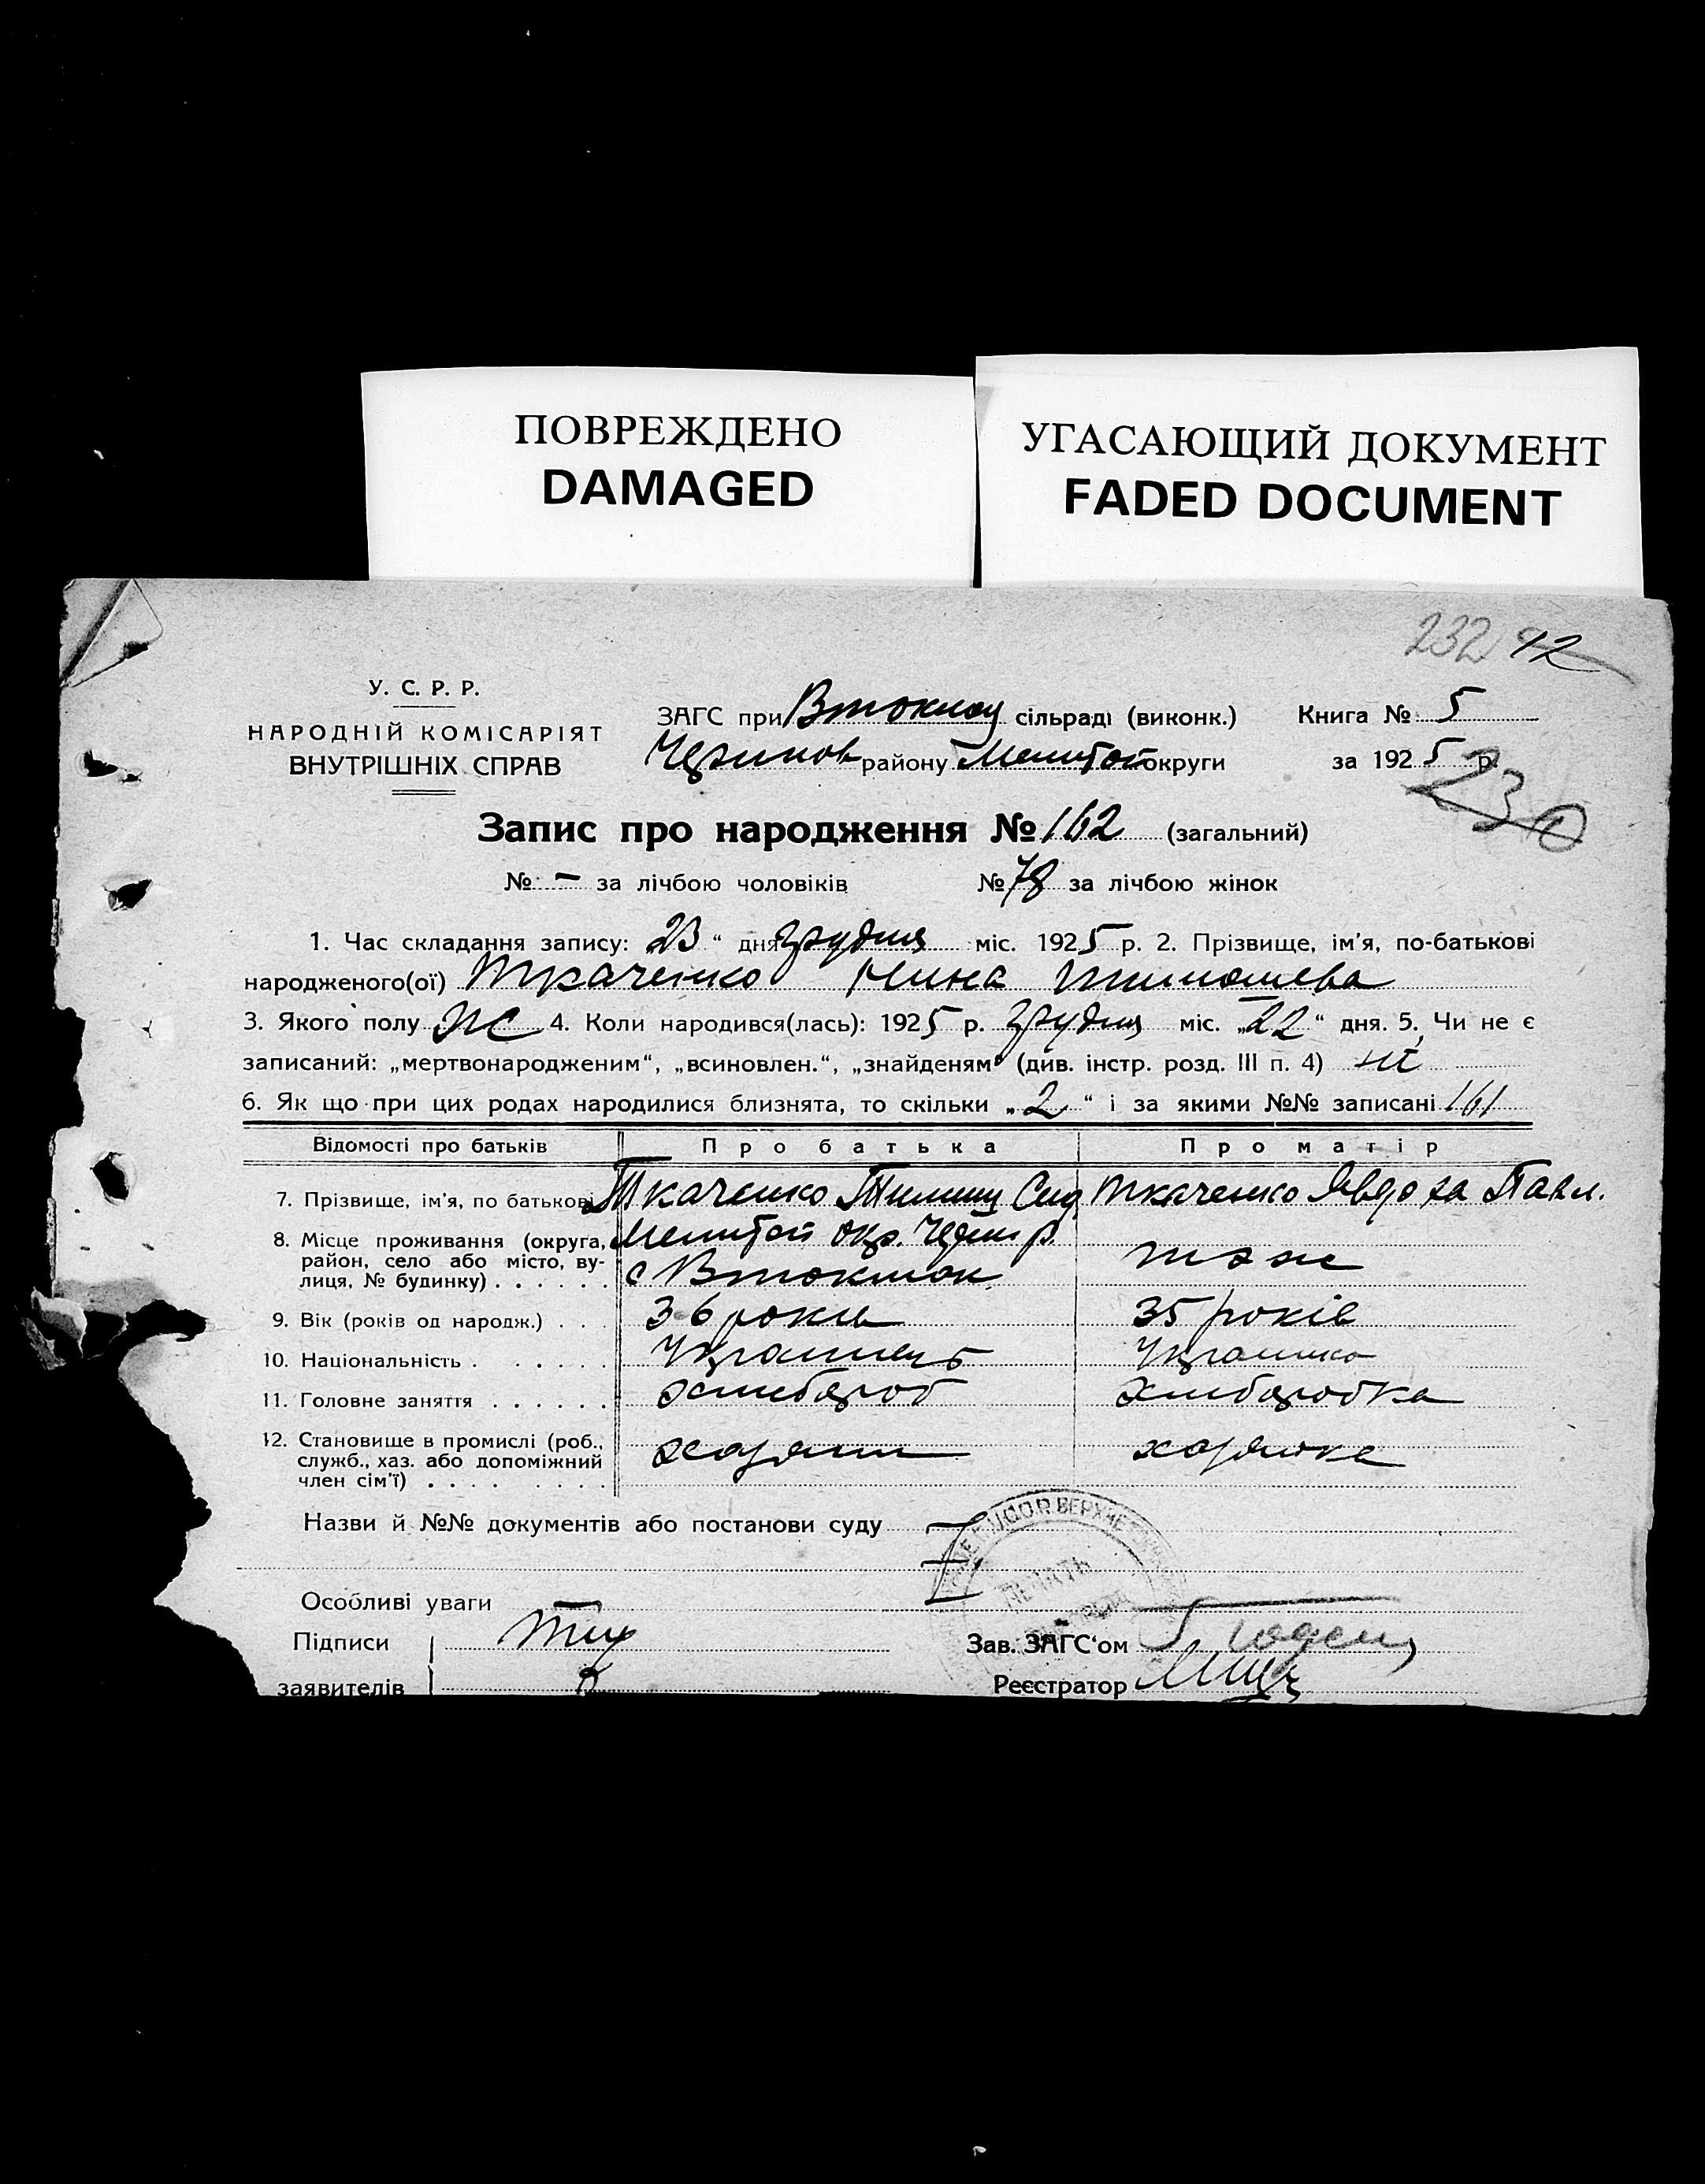 ПОВРЕЖДЕНО
DAMAGED
УГАСАЮЩИЙ ДОКУМЕНТ
FADED DOCUMENT
232 42
У. С. Р. Р.
НАРОДНІЙ КОМІСАРІЯТ
ВНУТРІШНІХ СПРАВ
ЗАГС при Втокмац сільраді (виконк.)
району округи
Книга № 5
за 1925 р.
230
Запис про народження № 162 (загальний)
№ - за лічбою чоловіків № 78 за лічбою жінок
1. Час складання запису: „23“ дня грудня міс. 1925 р. 2. Прізвище, ім’я, по-батькові
народженого(ої) Ткаченко Нина Тимошева
3. Якого полу Ж 4. Коли народився(лась): 1925 р. грудня міс. „22“ дня. 5. Чи не є
записаний: „мертвонародженим“, „всиновлен.“, „знайденям“ (див. інстр. розд. III п. 4) ні
6. Як що при цих родах народилися близнята, то скільки „2“ і за якими №№ записані 161
Відомості про батьків Про батька Про матір
7. Прізвище, ім’я, по батькові Ткаченко Тимиш Сид Ткаченко Явдоха Павл.
8. Місце проживання (округа, район, село або місто, вулиця, № будинку) . . . . . .
Мелитой окр. р.
с Втокмак
тож
9. Вік (років од народж.) . . . 36 років 35 років
10. Національність . . . . . . Українець Українка
11. Головне заняття . . . . . . хлибороб хлиборобка
12. Становище в промислі (роб., служб., хаз. або допоміжний член сім’ї) . . . . . . . . хозяин хозяйка
Назви й №№ документів або постанови суду
Особливі уваги
Підписи
заявителів
Зав. ЗАГС‘ом
Реєстратор